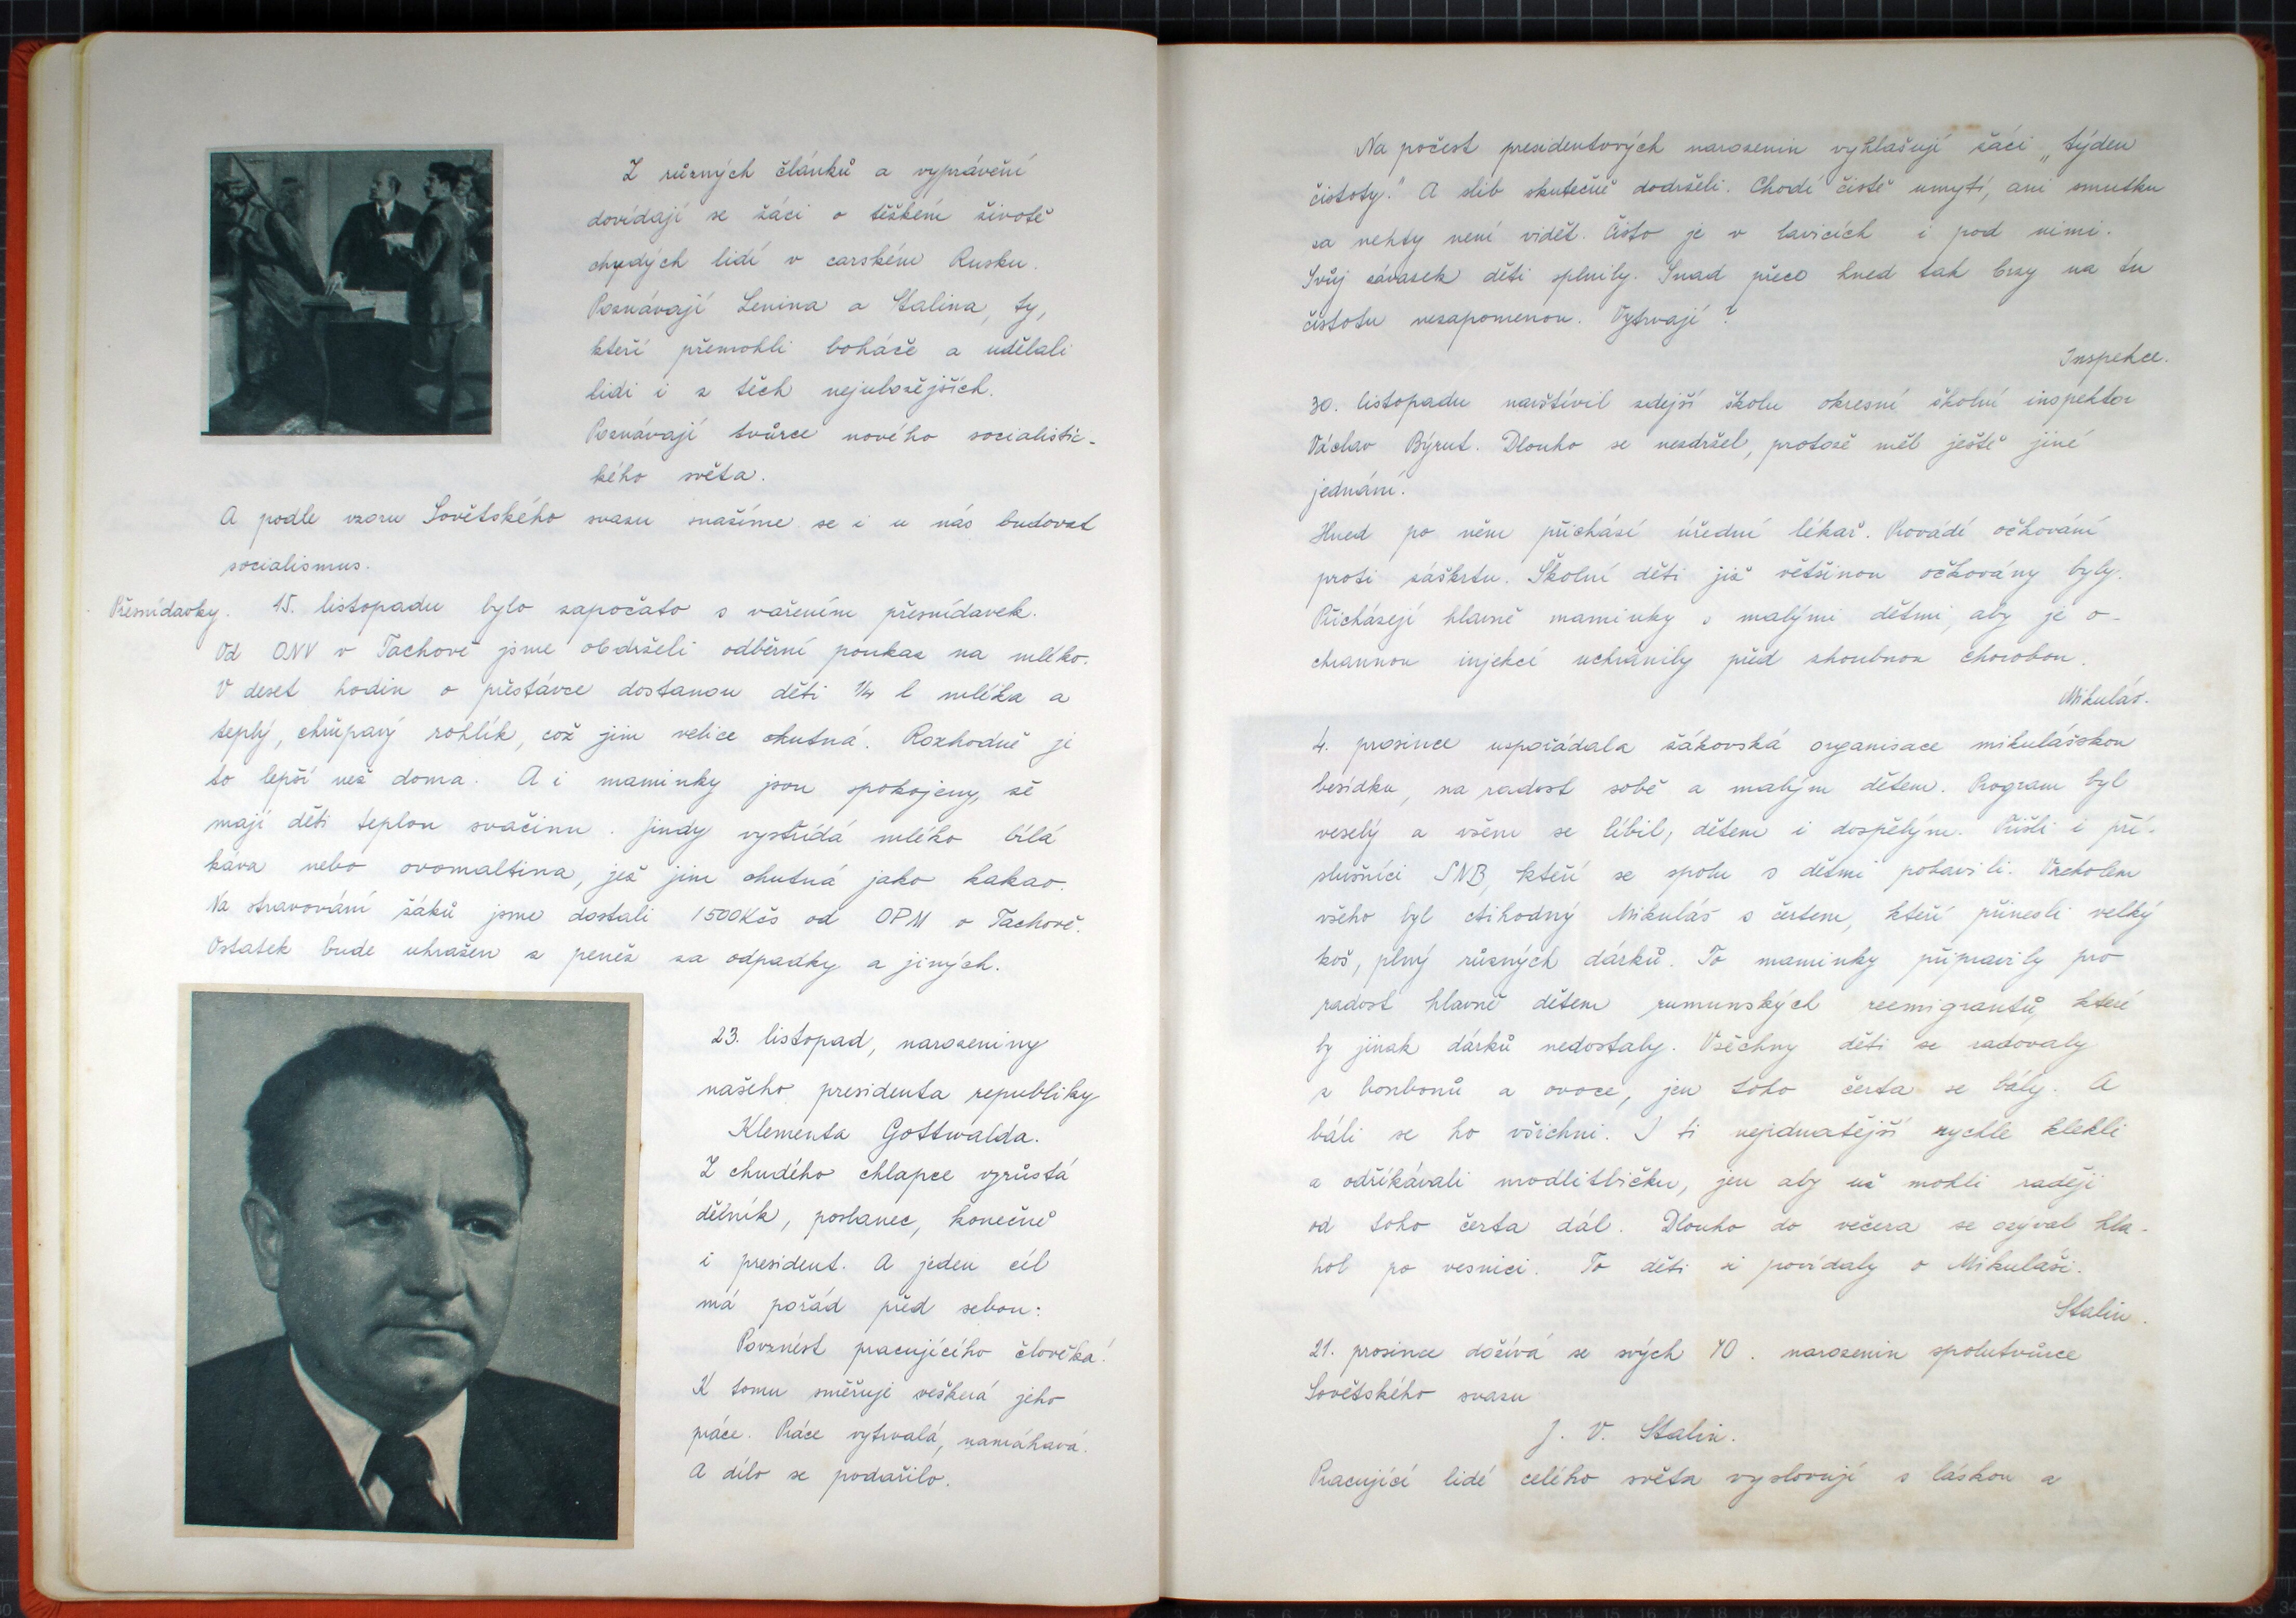 Z různých článků a vyprávění
dovídají se žáci o těžkém životě
chudých lidí v carském Rusku.
Poznávají Lenina a Stalina, ty,
kteří přemohli boháče a udělali
lidi i z těch nejubožejších.
Poznávají tvůrce nového socialistic-
kého světa.
A podle vzoru Sovětského svazu snažíme se i u nás budovat
socialismus.
Přesnídavky. 15. listopadu bylo započato s vařením přesnídavek.
Od ONV v Tachově jsme obdrželi odběrní poukaz na mléko.
V deset hodin o přestávce dostanou děti 1/4 l mléka a
teplý, chřupavý rohlík, což jim velice chutná. Rozhodně je
to lepší než doma. A i maminky jsou spokojeny, že
mají děti teplou svačinu. Jindy vystřídá mléko bílá
káva nebo ovomaltina, jež jim chutná jako kakao.
Na stravování žáků jsme dostali 1500Kčs od OPM v Tachově.
Ostatek bude uhrazen z peněz za odpadky a jiných.
23. listopad, narozeniny
našeho presidenta republiky
Klementa Gottwalda.
Z chudého chlapce vyrůstá
dělník, poslanec, konečně
i president. A jeden cíl
má pořád před sebou:
Povznést pracujícího člověka!
K tomu směřuje veškerá jeho
práce. Práce vytrvalá, namáhavá.
A dílo se podařilo.
Na počest presidentových narozenin vyhlašují žáci „týden
čistoty." A slib skutečně dodrželi. Chodí čistě umytí, ani smutku
za nehty není vidět. Čisto je v lavicích i pod nimi.
Svůj závazek děti splnily. Snad přece hned tak brzy na tu
čistotu nezapomenou. Vytrvají?
Inspekce.
30. listopadu navštívil zdejší školu okresní školní inspektor
Václav Býrut. Dlouho se nezdržel, protože měl ještě jiné
jednání.
Hned po něm přichází úřední lékař. Provádí očkování
proti záškrtu. Školní děti již většinou očkovány byly.
Přicházejí hlavně maminky s malými dětmi, aby je o-
chrannou injekcí uchránily před zhoubnou chorobou.
Mikuláš.
4. prosince uspořádala žákovská organisace mikulášskou
besídku, na radost sobě a malým dětem. Program byl
veselý a všem se líbil, dětem i dospělým. Přišli i pří-
slušníci SNB, kteří se spolu s dětmi pobavili. Vrcholem
všeho byl ctihodný Mikuláš s čertem, kteří přinesli velký
koš, plný různých dárků. To maminky připravily pro
radost hlavně dětem rumunských reemigrantů, které
by jinak dárků nedostaly. Všechny děti se radovaly
z bonbonů a ovoce, jen toho čerta se bály. A
báli se ho všichni. I ti nejednatější rychle klekli
a odříkávali modlitbičku, jen aby už mohli raději
od toho čerta dál. Dlouho do večera se ozýval hla-
hol po vesnici. To děti si povídaly o Mikuláši.
Stalin.
21. prosince dožívá se svých 70. narozenin spolutvůrce
Sovětského svazu
J. V. Stalin.
Pracující lidé celého světa vyslovují s láskou a